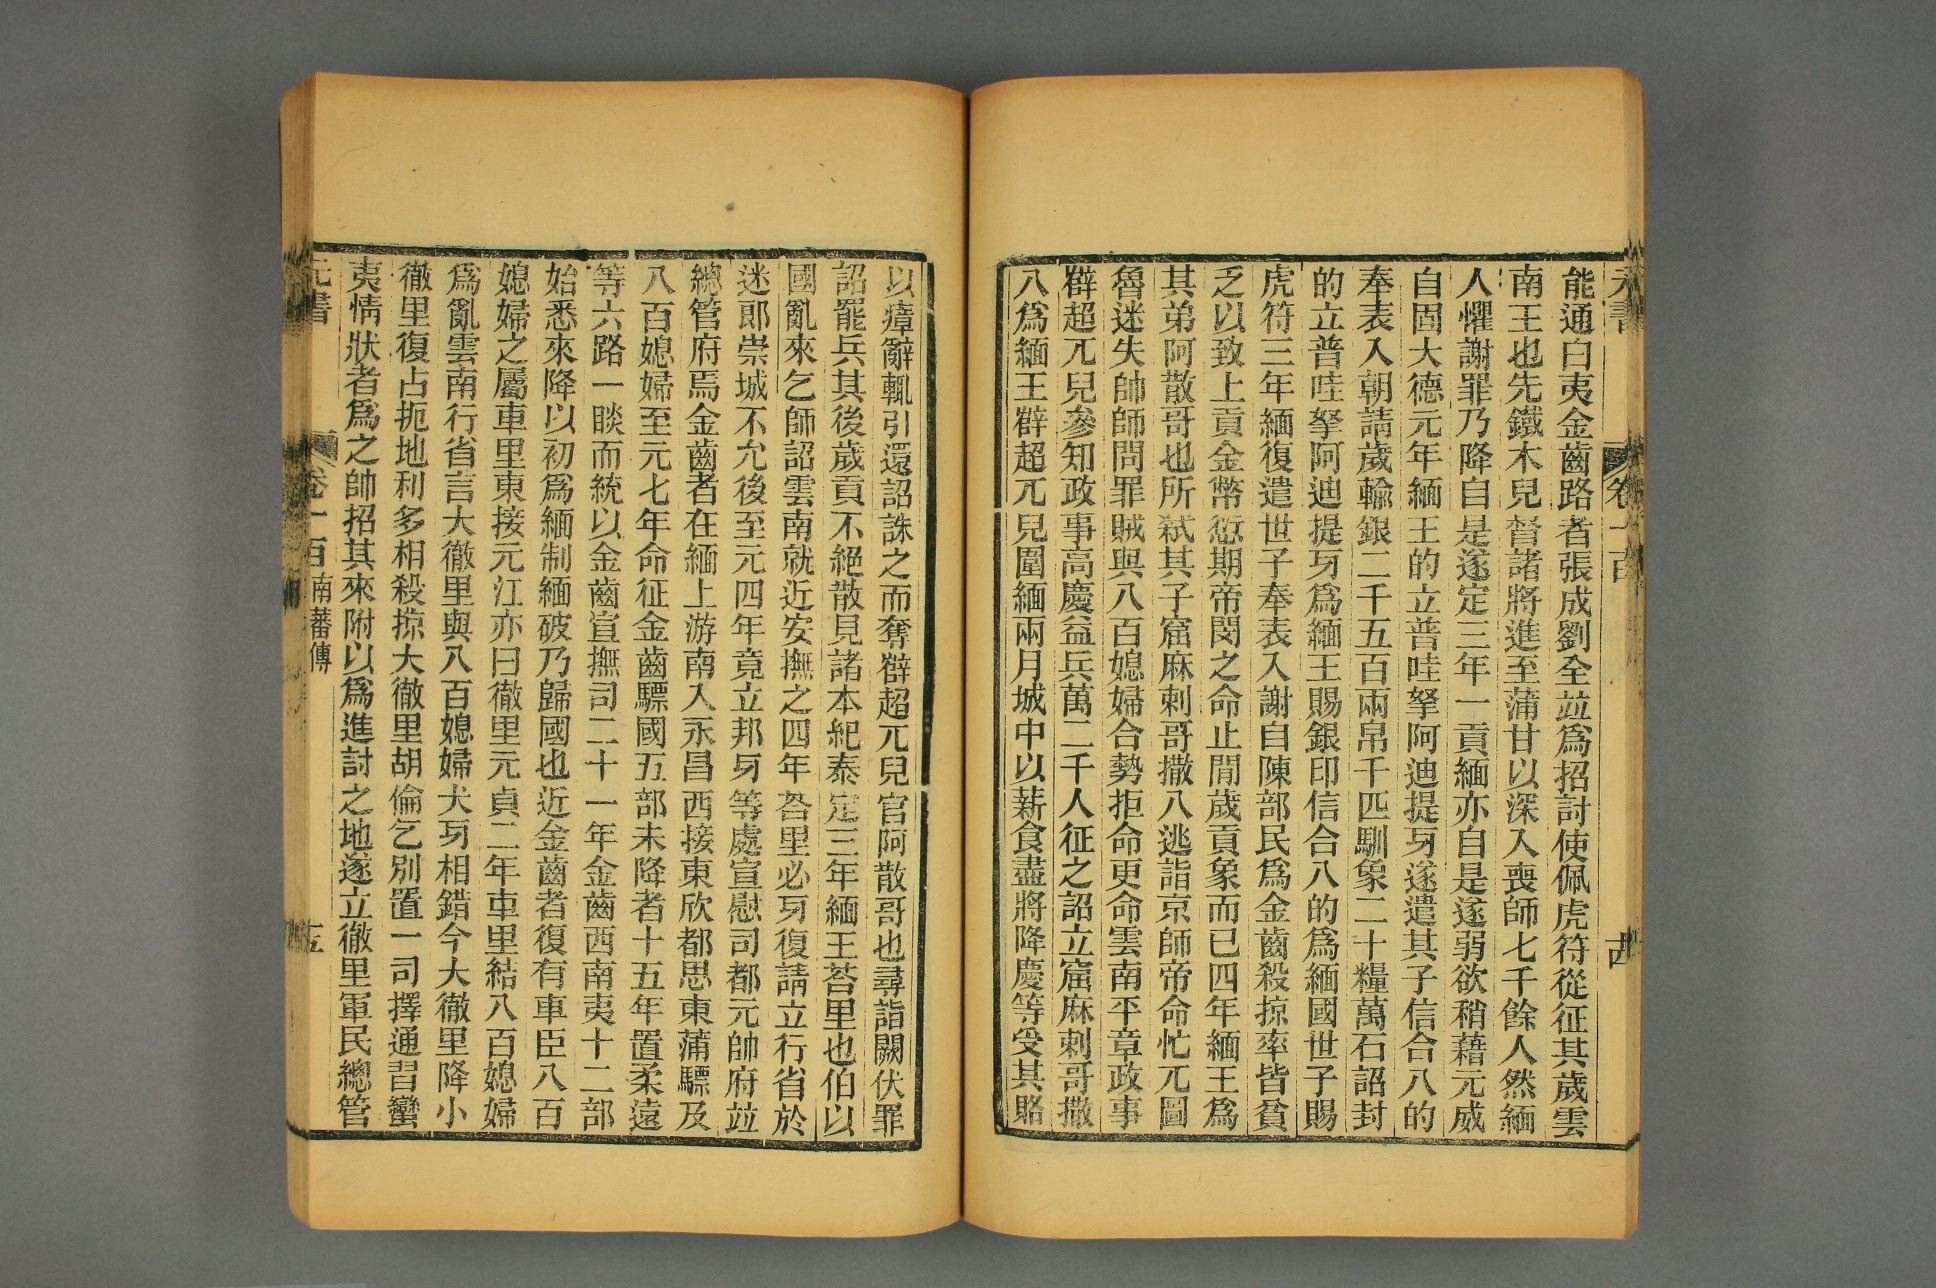 元書 卷一百 古
能通白夷金齒路者張成劉全竝爲招討使佩虎符從征其歲雲
南王也先鐵木兒督諸將進至蒲甘以深入喪師七千餘人然緬
人懼謝罪乃降自是遂定三年一貢緬亦自是遂弱欲稍藉元威
自固大德元年緬王的立普哇拏阿迪提牙遂遣其子信合八的
奉表入朝請歲輸銀二千五百兩帛千匹馴象二十糧萬石詔封
的立普哇拏阿迪提牙爲緬王賜銀印信合八的爲緬國世子賜
虎符三年緬復遣世子奉表入謝自陳部民爲金齒殺掠率皆貧
乏以致上貢金幣愆期帝閔之命止間歲貢象而已四年緬王爲
其弟阿散哥也所弒其子窟麻剌哥撒八逃詣京師帝命忙兀圖
魯迷失帥師問罪賊與八百媳婦合勢拒命更命雲南平章政事
薛超兀兒參知政事高慶益兵萬二千人征之詔立窟麻剌哥撒
八爲緬王薛超兀兒圍緬兩月城中以薪食盡將降慶等受其賂
以瘴辭輒引還詔誅之而奪薛超兀兒官阿散哥也尋詣闕伏罪
詔罷兵其後歲貢不絕散見諸本紀泰定三年緬王荅里也伯以
國亂來乞師詔雲南就近安撫之四年荅里必牙復請立行省於
迷郎崇城不允後至元四年竟立邦牙等處宣慰司都元帥府竝
總管府焉金齒者在緬上游南入永昌西接東欣都思東蒲驃及
八百媳婦至元七年命征金齒驃國五部未降者十五年置柔遠
等六路一睒而統以金齒宣撫司二十一年金齒西南夷十二部
始悉來降以初爲緬制緬破乃歸國也近金齒者復有車臣八百
媳婦之屬車里東接元江亦曰徹里元貞二年車里結八百媳婦
爲亂雲南行省言大徹里與八百媳婦犬牙相錯今大徹里降小
徹里復占扼地利多相殺掠大徹里胡倫乞別置一司擇通習蠻
夷情狀者爲之帥招其來附以爲進討之地遂立徹里軍民總管
元書 卷一百 南蕃傳 十五